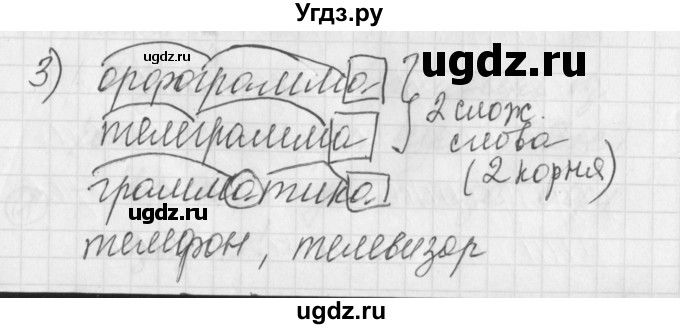 Угдз.ру
3) орфограмма
телеграмма
2 слож.
слова
(2 корня)
грамматика
телефон, телевизор
ugdz.ru
ugdz.ru
ugdz.ru
ugdz.ru
ugdz.ru
ugdz.ru